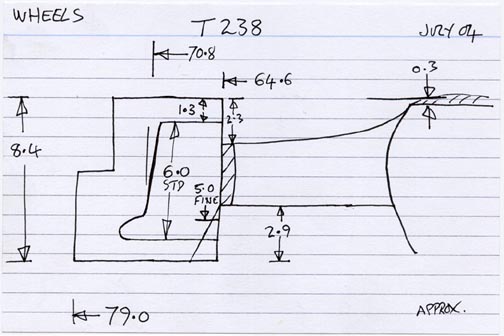 WHEELS
T 238
JULY 04
70.8
64.6
0.3
1.3
2.3
8.4
6.0
STD
5.0
FINE
2.9
79.0
APPROX.